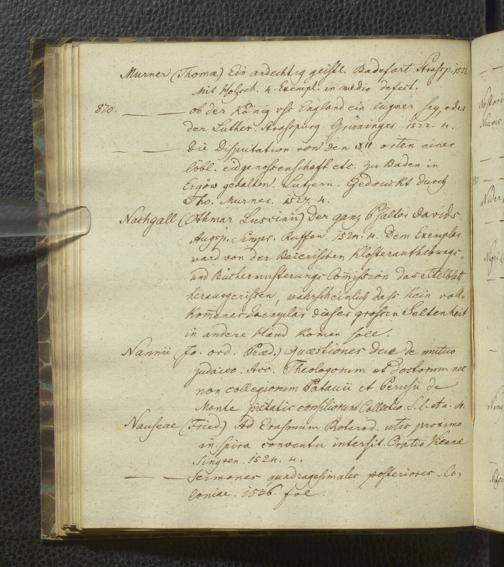 Murner (Thomæ) Ein andechtig geistl. Badefart. Strassp. 1522
Mit Holsch. 4. Exempl. in medio defect.
820. — ob der König vss England ein lugner sey, oder
der Luther. Strassburg. Grüninger. 1522. 4.
— Die Disputation von den XII orten einer
löbl. eidgenossenschaft etc. zu Baden in
Ergöw gehalten. Lutzern. Gedruckt durch
Tho. Murner. 1527. 4.
Nachgall (Othmar Luscinii) Der ganz Psalter Davids
Augsp. Ruffen. 1524. 4. Dem Exemplar
ward von der Baierischen Klosteraufhebungs-
und Büchermusterungs Comission das
herausgerissen, wahrscheinlich dass kein voll-
komenes Exemplar dieses grossen Seltenheit
in andere Hand komen soll.
Nannii (fo. ord. Præd.) Quæstiones duæ de mutuo
judaico. Acc. Theologorum et doctorum nec
non collegiorum Patavii et Perusii de
Monte pietatis consiliorum Collectio. S. l. et a. 4.
Nauseae (Fried.) Ad Erasmum Roterod. utis proximo
in spira conventu intersit. Oratio
Singren. 1524. 4.
— Sermones quadragesimales posteriores. Co-
loniae. 1536. fol.